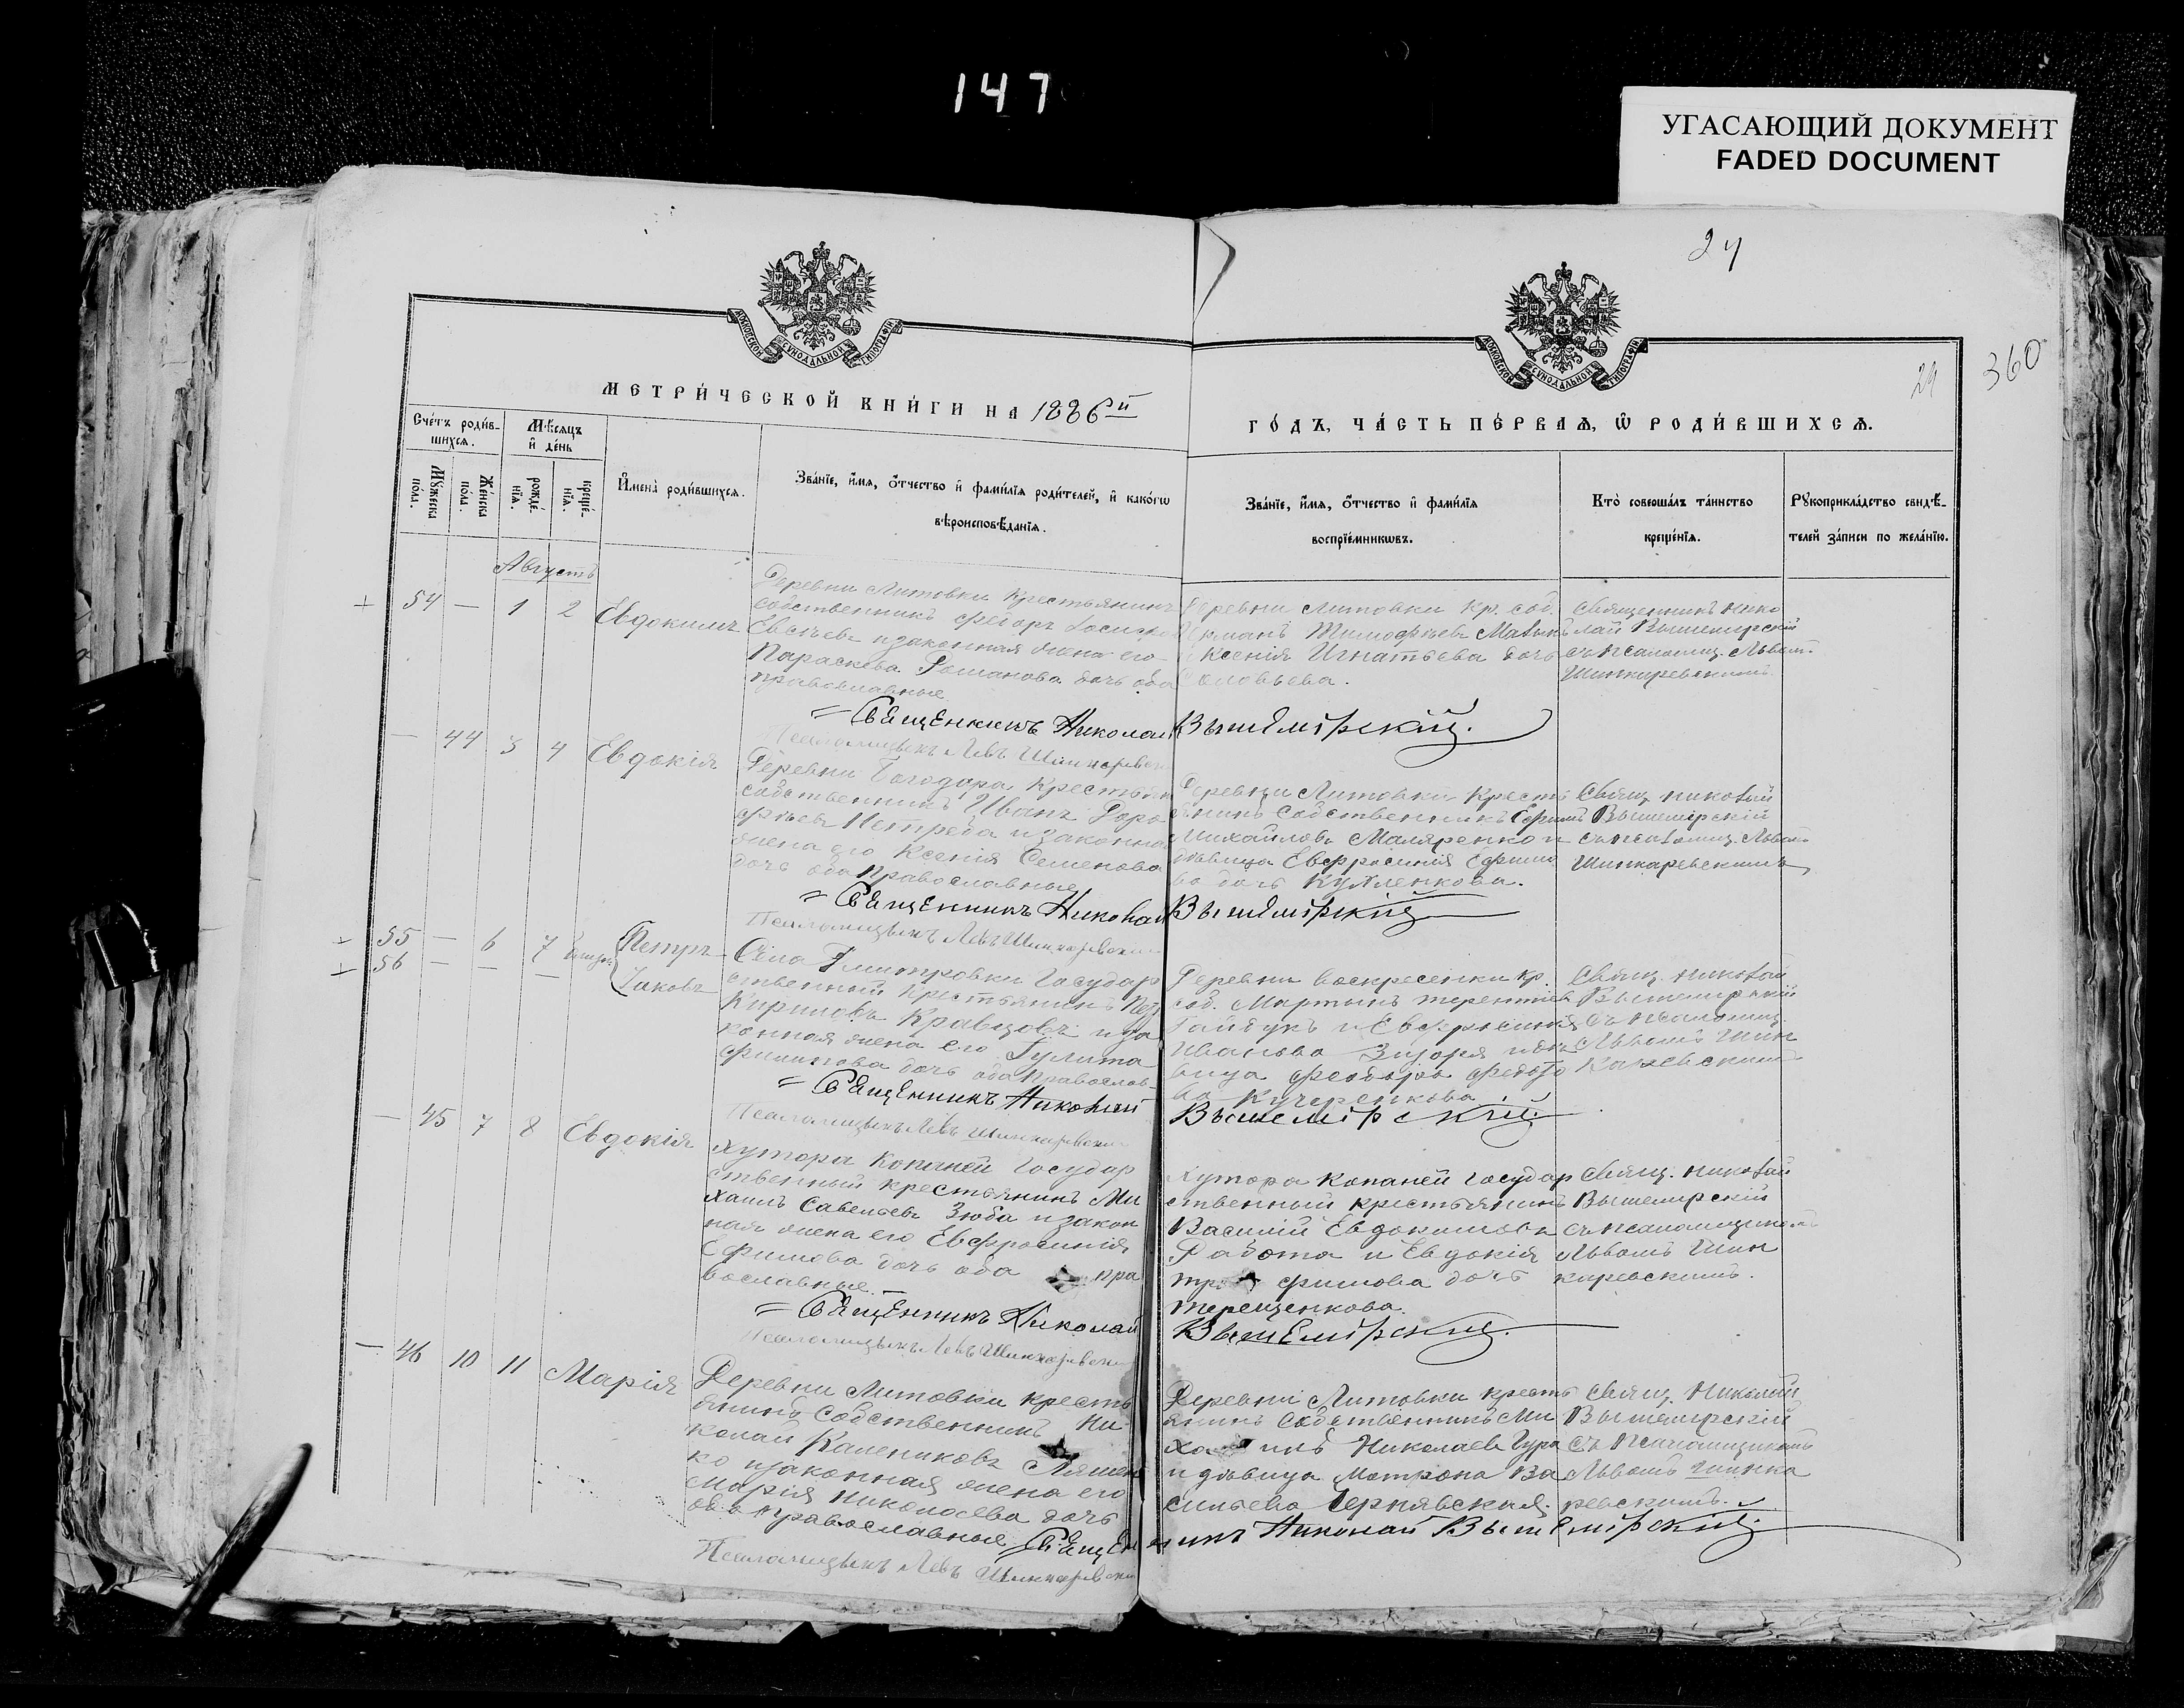 147
УГАСАЮЩИЙ ДОКУМЕНТ
FADED DOCUMENT
24
29
360
МОСКОВСКОЙ СУНОДАЛЬНОЙ ТИПОГРАФІИ
МОСКОВСКОЙ СУНОДАЛЬНОЙ ТИПОГРАФІИ
МЕТРИ́ЧЕСКОЙ КНИ́ГИ НА 1886й
ГО́ДЪ, ЧА́СТЬ ПЕ́РВАѦ, Ѡ҆ РОДИ́ВШИХСѦ.
Сче́тъ роди́в-
шихсѧ.
Мѣ́сѧцъ
и҆ де́нь
Мꙋ́жеска
по́ла.
Же́нска
по́ла.
рожде́-
нїѧ.
креще́-
нїѧ.
И҆мена̀ роди́вшихсѧ.
Зва́нїе, и҆́мѧ, ѻ҆́тчество и҆ фами́лїѧ роди́телей, и҆ како́гѡ
вѣроисповѣ́данїѧ.
Зва́нїе, и҆́мѧ, ѻ҆́тчество и҆ фами́лїѧ
воспрїе́мникѡвъ.
Кто̀ соверша́лъ та́инство
креще́нїѧ.
Рꙋкоприкла́дство свидѣ́-
телей за́писи по жела́нїю.
Августъ
54 — 1 2 Евдокимъ
Деревни Литовки крестьянинъ
собственникъ Ѳеодоръ
Евсѣевъ и законная жена его
Параскева Романова дочь оба
православные
Деревни Литовки кр. соб.
Тимофѣевъ
Ксенія Игнатьева дочь
Соловьева.
Священникъ Нико
лай Вышемірскій
съ псаломщ. Львом.
Шинкаревскимъ
Священникъ Николай Вышемірскій.
Псаломщикъ Левъ Шинкаревскій
— 44 3 4 Евдокія
Деревни Богодара крестьян
собственникъ Иванъ Доро
фѣевъ Петреба и законная
жена его Ксенія Семенова
дочь оба православные
Деревни Литовки кресть
янинъ собственникъ Ефимъ
Михайловъ Маляренко и
дѣвица Евфросинія Ефимо
ва дочь Куценкова.
Свящ. Николай
Вышемірскій
съ псаломщ. Львом
Шинкаревскимъ
Священникъ Николай Вышемірскій
Псаломщикъ Левъ Шинкаревскій
55 — 6 7 Петръ
56 — — — Іаковъ
Села Дмитровки государ
ственный крестьянинъ Петръ
Кириловъ Кравцовъ и за
конная жена его Гулита
Филипова дочь оба православ-
Деревни Воскресенки кр.
соб. Мартынъ Терентіевъ
Гайдукъ и Евфросинія
Иванова
вица Феодора
ва Кучеренкова
Свящ. Николай
Вышемірскій
съ псаломщ.
Львомъ Шин
каревскимъ
Священникъ Николай Вышемірскій.
Псаломщикъ Левъ Шинкаревскій
— 45 7 8 Евдокія
Хутора Копаней государ
ственный крестьянинъ Ми
хаилъ Савельевъ Зюба и закон
ная жена его Евфросинія
Ефимова дочь оба пра
вославные
Хутора Копаней государ
ственный крестьянинъ
Василій Евдокимовъ
Работа и Евдокія
фимова дочь
Терещенкова.
Свящ. Николай
Вышемірскій
съ псаломщикомъ
Львомъ Шин
каревскимъ.
Священникъ Николай Вышемірскій.
Псаломщикъ Левъ Шинкаревскій
— 46 10 11 Марія
Деревни Литовки кресть
янинъ собственникъ Ни
колай Калениковъ Ляшен
ко и законная жена его
Марія Николаева дочь
оба православные
Деревни Литовки кресть
янинъ собственникъ Ми
хаилъ Николаевъ Гура
и дѣвица Матрона Ва
сильева Чернявская.
Свящ. Николай
Вышемірскій
съ псаломщикомъ
Львомъ Шинка
ревскимъ.
Священникъ Николай Вышемірскій.
Псаломщикъ Левъ Шинкаревскій